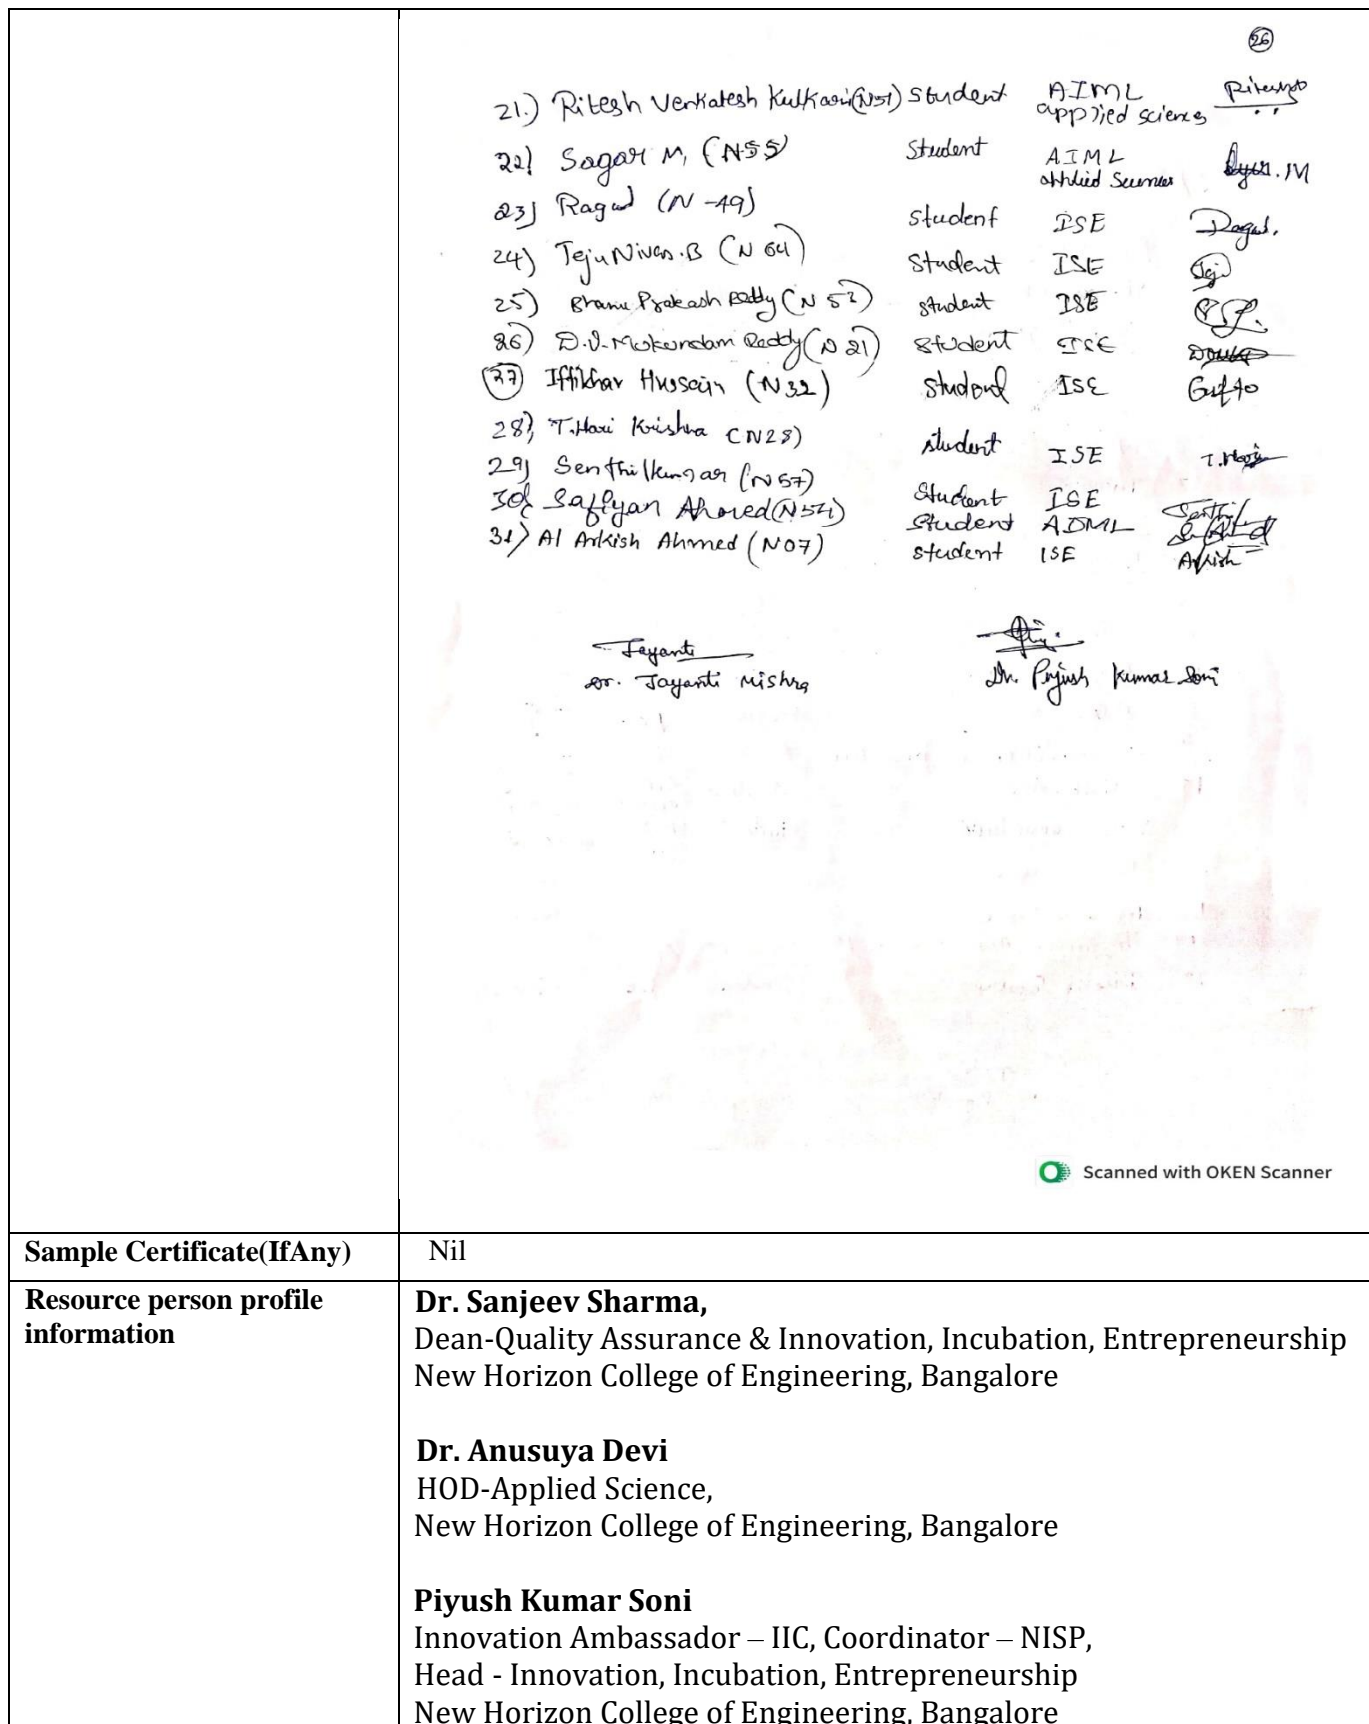 26
21.) Ritesh Venkatesh Kulkarni (N51) Student AIML
applied sciences
22) Sagar M, (N55) Student AIML
applied Sciences
23) Ragul (N-49) Student ISE Ragul.
24) Teju Nivas.B (N 64) Student ISE Teju
25) Bhanu Prakash Reddy (N 52) Student ISE
26) D.V. Mukundam Reddy (N 21) Student ISE
27) Iftikhar Hussain (N32) Student ISE
28) T. Hari Krishna (N28) Student ISE T. Hari
29) Senthilkumar (N57) Student ISE Senthil
30) Safiyan Ahmed (N54) Student AIML
31) Al Arkish Ahmed (N07) Student ISE Arkish
Jayanti
Dr. Jayanti Mishra Dr. Piyush Kumar Soni
Scanned with OKEN Scanner
Sample Certificate(IfAny) Nil
Resource person profile
information
Dr. Sanjeev Sharma,
Dean-Quality Assurance & Innovation, Incubation, Entrepreneurship
New Horizon College of Engineering, Bangalore
Dr. Anusuya Devi
HOD-Applied Science,
New Horizon College of Engineering, Bangalore
Piyush Kumar Soni
Innovation Ambassador – IIC, Coordinator – NISP,
Head - Innovation, Incubation, Entrepreneurship
New Horizon College of Engineering, Bangalore